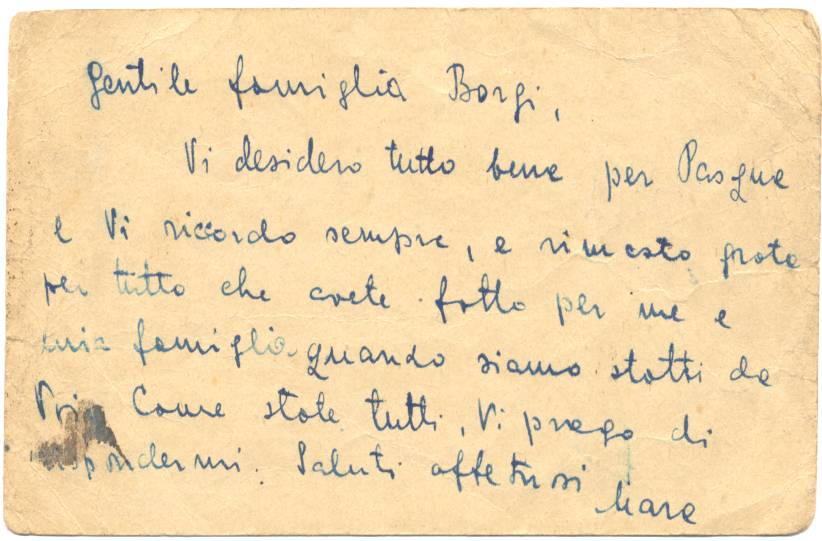 Gentile famiglia Borgi,
Vi desidero tutto bene per Pasque
e Vi ricordo sempre, e rimesto grata
per tutto che avete fatto per me e
mia famiglia quando siamo statti da
Come state tutti, Vi prego di
Saluti affetusi
Mara